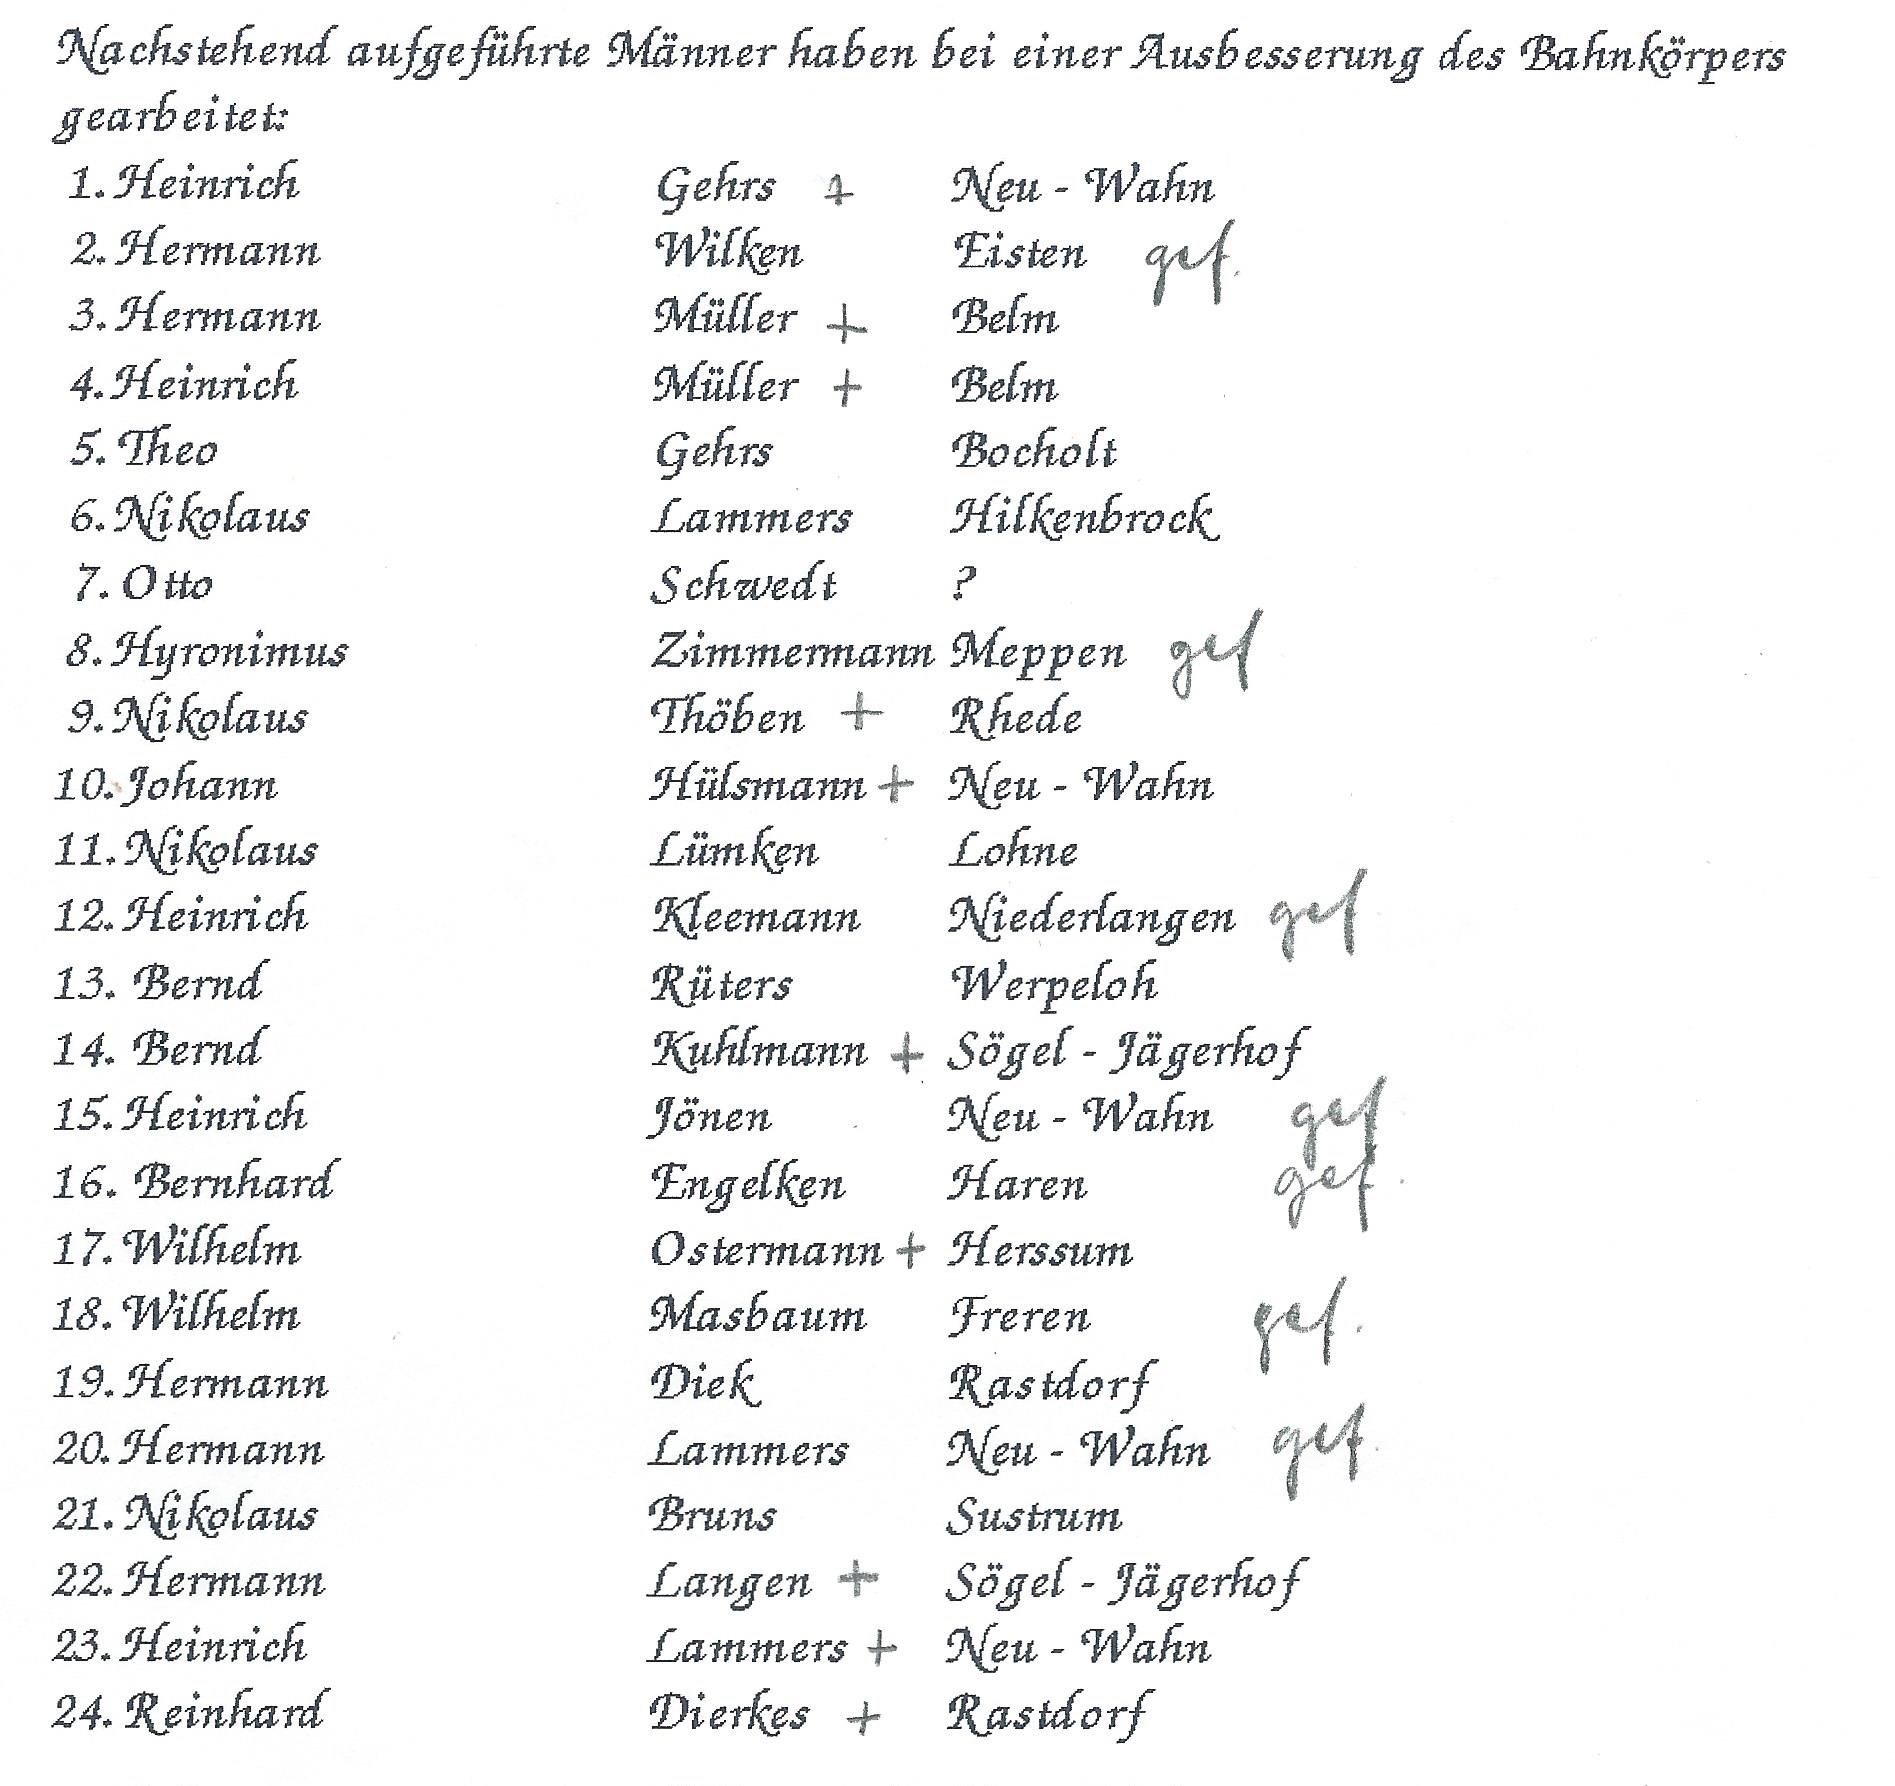 Nachstehend aufgeführte Männer haben bei einer Ausbesserung des Bahnkörpers
gearbeitet:
1. Heinrich Gehrs + Neu - Wahn
2. Hermann Wilken Eisten gef.
3. Hermann Müller + Belm
4. Heinrich Müller + Belm
5. Theo Gehrs Bocholt
6. Nikolaus Lammers Hilkenbrock
7. Otto Schwedt ?
8. Hyronimus Zimmermann Meppen gef
9. Nikolaus Thöben + Rhede
10. Johann Hülsmann + Neu - Wahn
11. Nikolaus Lümken Lohne
12. Heinrich Kleemann Niederlangen gef
13. Bernd Rüters Werpeloh
14. Bernd Kuhlmann + Sögel - Jägerhof
15. Heinrich Jönen Neu - Wahn gef
16. Bernhard Engelken Haren gef.
17. Wilhelm Ostermann + Herssum
18. Wilhelm Masbaum Freren gef.
19. Hermann Diek Rastdorf
20. Hermann Lammers Neu - Wahn gef.
21. Nikolaus Bruns Sustrum
22. Hermann Langen + Sögel - Jägerhof
23. Heinrich Lammers + Neu - Wahn
24. Reinhard Dierkes + Rastdorf